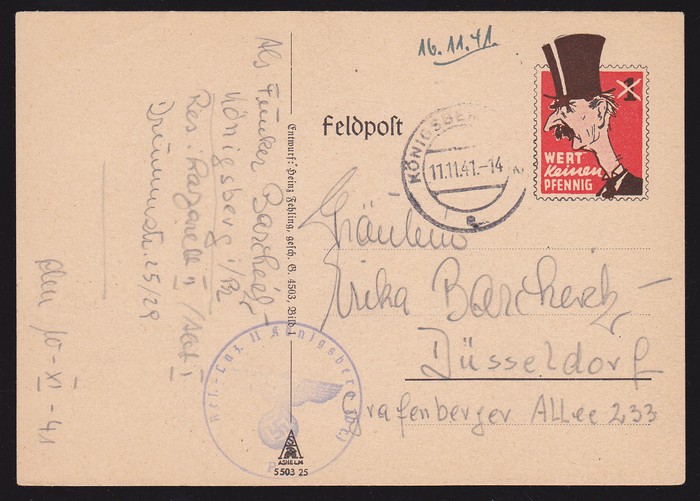 16.11.41.
Feldpost
KÖNIGSBE
11.11.41.-14
e
WERT
keinen
PFENNIG
1
Fräulein
Erika
Düsseldorf
Grafenberger Allee 233
Abs Funker
Königsberg i/Pr
Res. Lazarett II
25/29
den 10-XI-41
Entwurf: Heinz Fehling, gesch. G. 4503, Bild 1
Res.-Laz. II Königsberg (Pr)
ASHELM
S 503 25